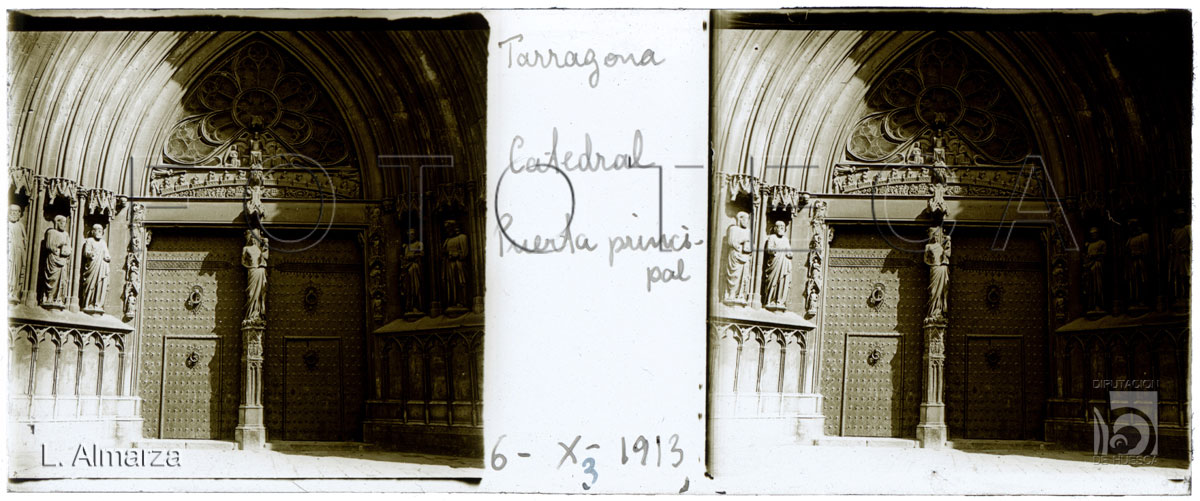 Tarragona
Catedral
Puerta princi-
pal
6- X- 1913
3
FOTOTECA
L. Almarza
DIPUTACION
DE HUESCA